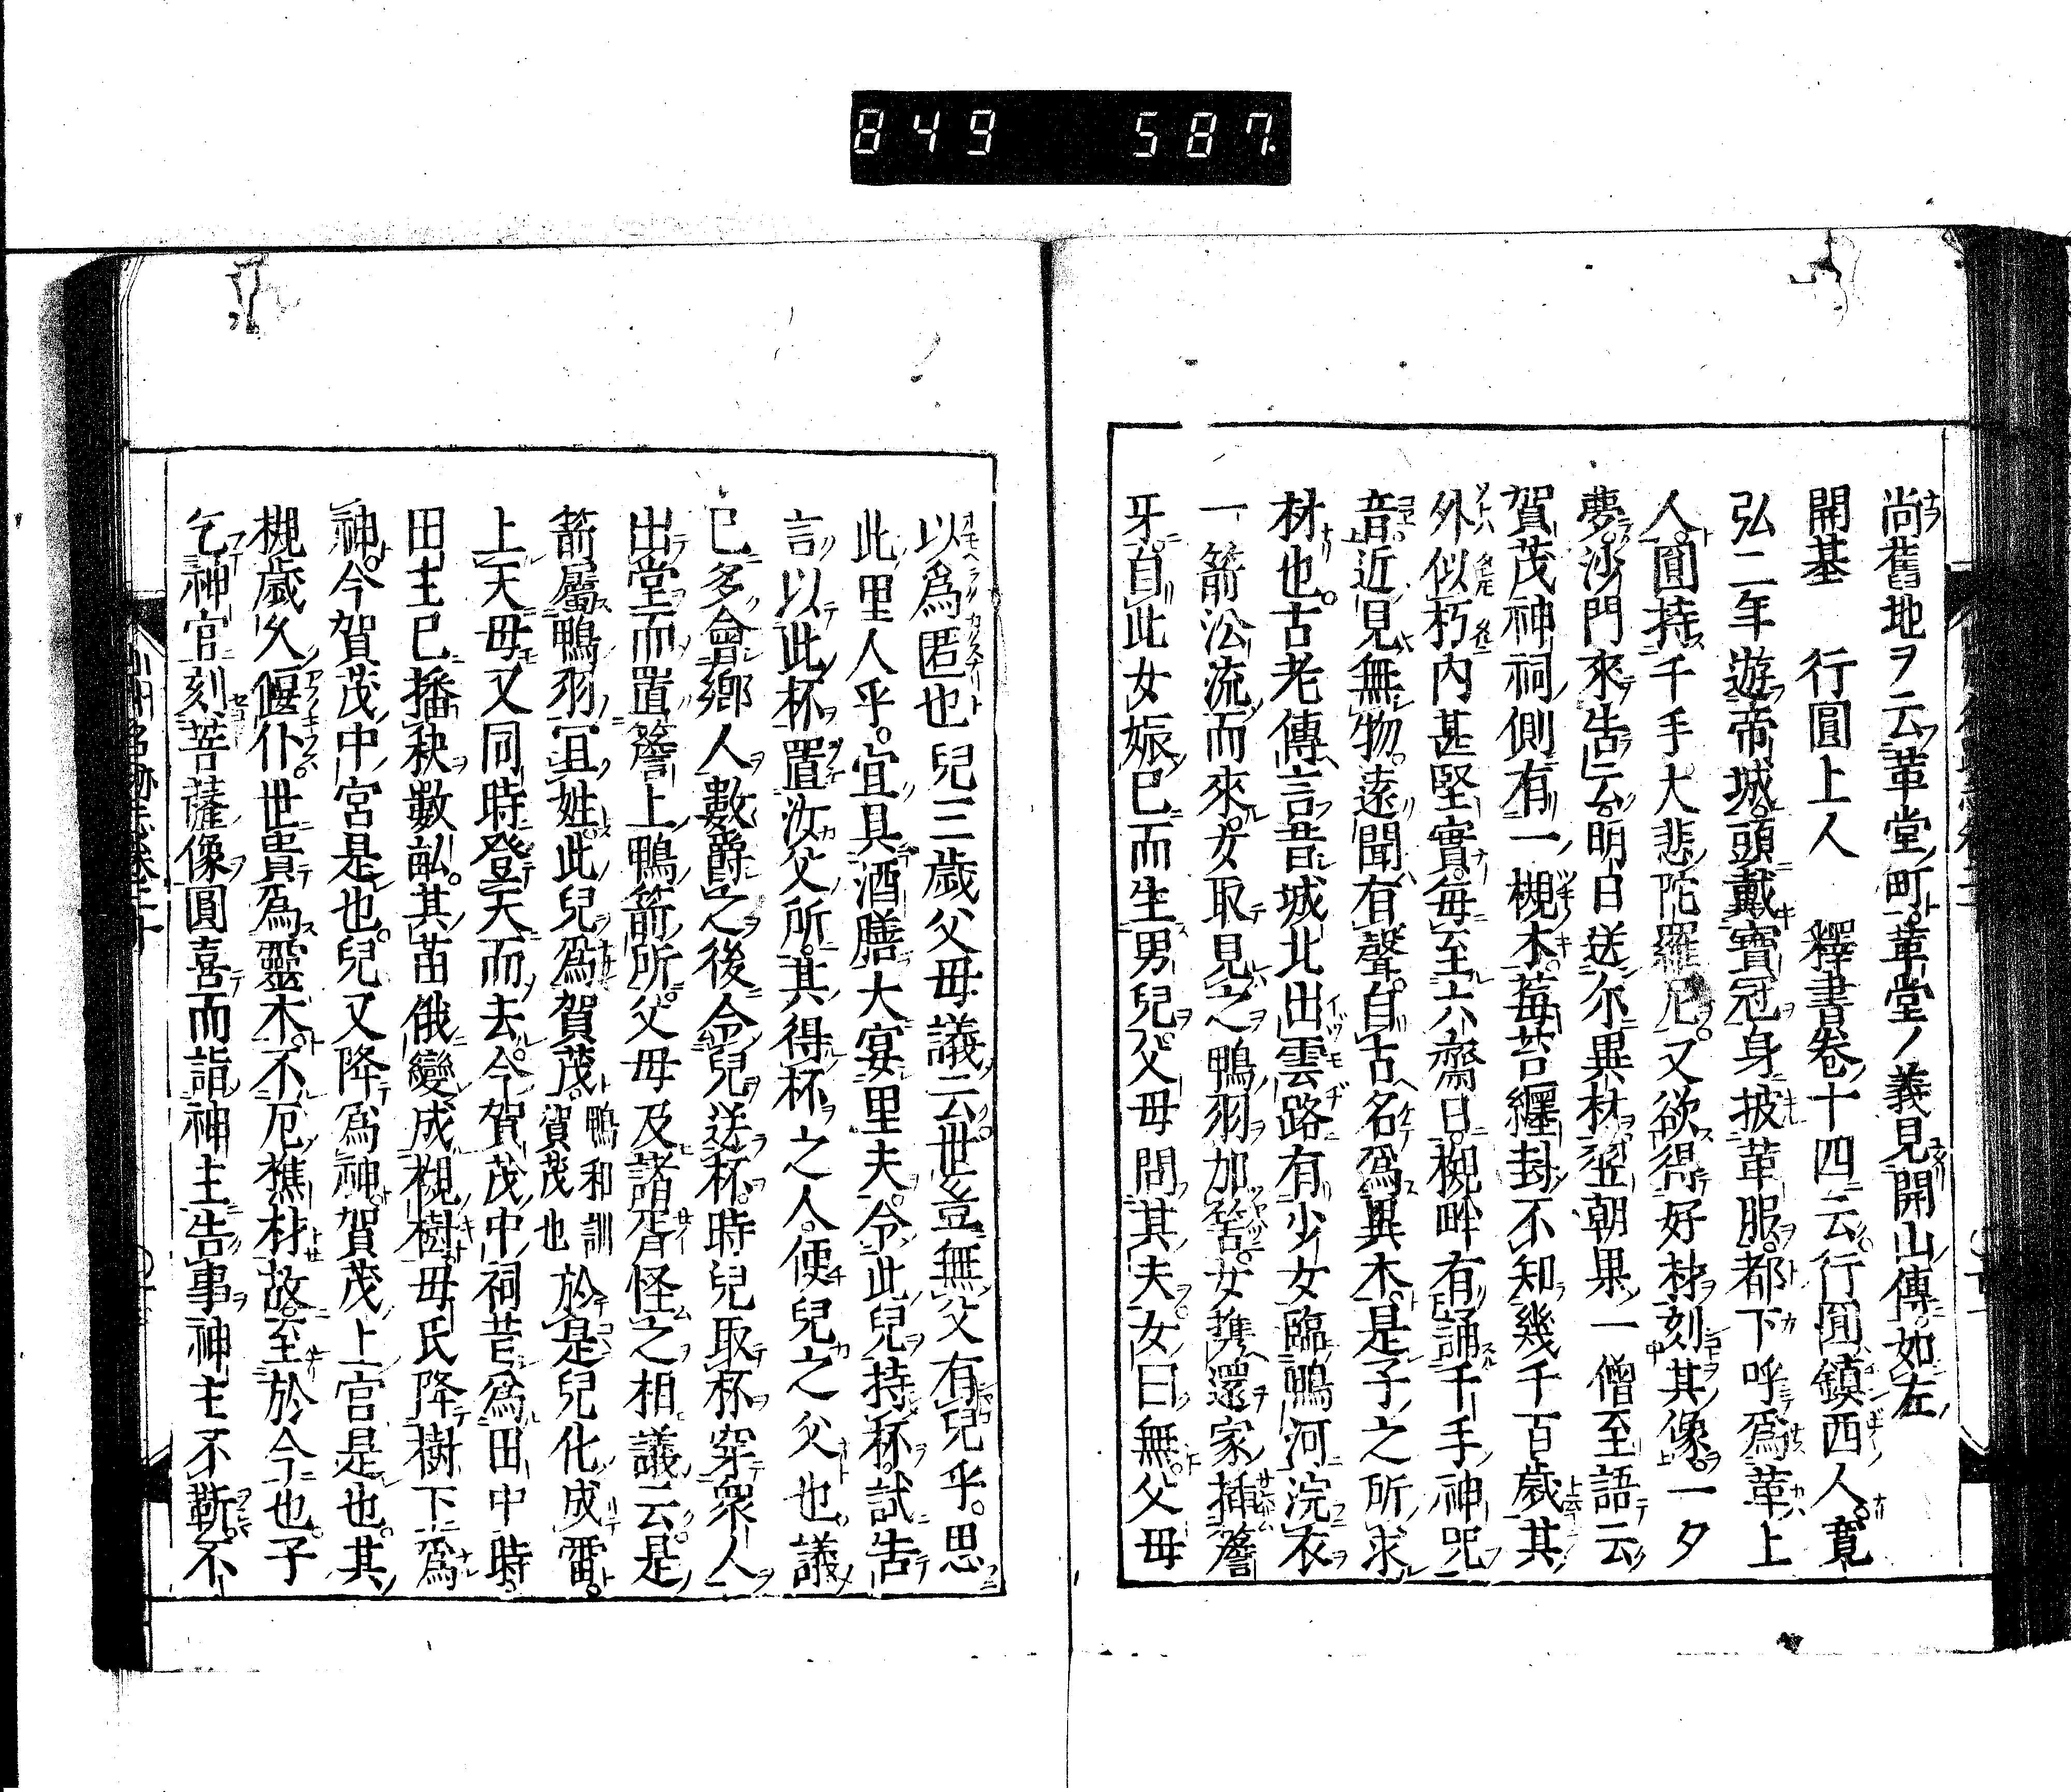 849 587
尚舊地ヲ云革堂町革堂ノ義見開山傳如左
開基 行圓上人 釋書卷十四云行圓鎮西人寛
弘二年遊帝城頭戴寶冠身披革服都下呼爲革上
人圓持千手大悲陀羅尼又欲得好材刻其像一夕
夢沙門來告云明日送尓異材翌朝果一僧至語云
賀茂神祠側有一槻木莓苔纒封不知幾千百歳其
外似朽内甚堅實毎至六齋日槻畔有誦千手神咒
音近見無物遠聞有聲自古名爲異木是子之所求
材也古老傳言昔城北出雲路有少女臨鴨河浣衣
一箭沿流而來女取見之鴨羽加筈女携還家揷簷
牙自此女娠已而生男兒父母問其夫女曰無父母
以爲匿也兒三歳父母議云世豈無父有兒乎思
此里人乎宜具酒膳大宴里夫令此兒持杯試告
言以此杯置汝父所其得杯之人便兒之父也議
已多會鄉人數爵之後令兒送杯時兒取杯穿衆人
出堂而置簷上鴨箭所父母及諸胥怪之相議云是
箭屬鴨羽冝姓此兒爲賀茂鴨和訓賀茂也於是兒化成雷
上天母又同時登天而去今賀茂中祠昔爲田中時
田主已播秧數畝其苗俄變成槻樹母氏降樹下爲
神今賀茂中宮是也兒又降爲神賀茂上宮是也其
槻歳久偃仆世貴爲靈木不厄樵材故至於今也子
乞神官刻菩薩像圓喜而詣神主告事神主不靳不